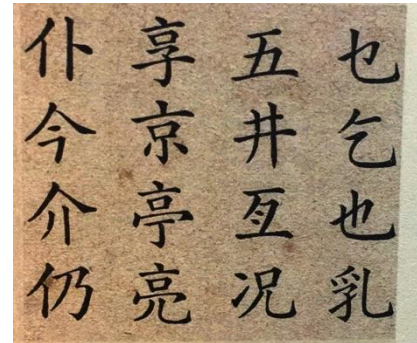 乜乞也乳
五井亙况
享京亭亮
仆今介仍